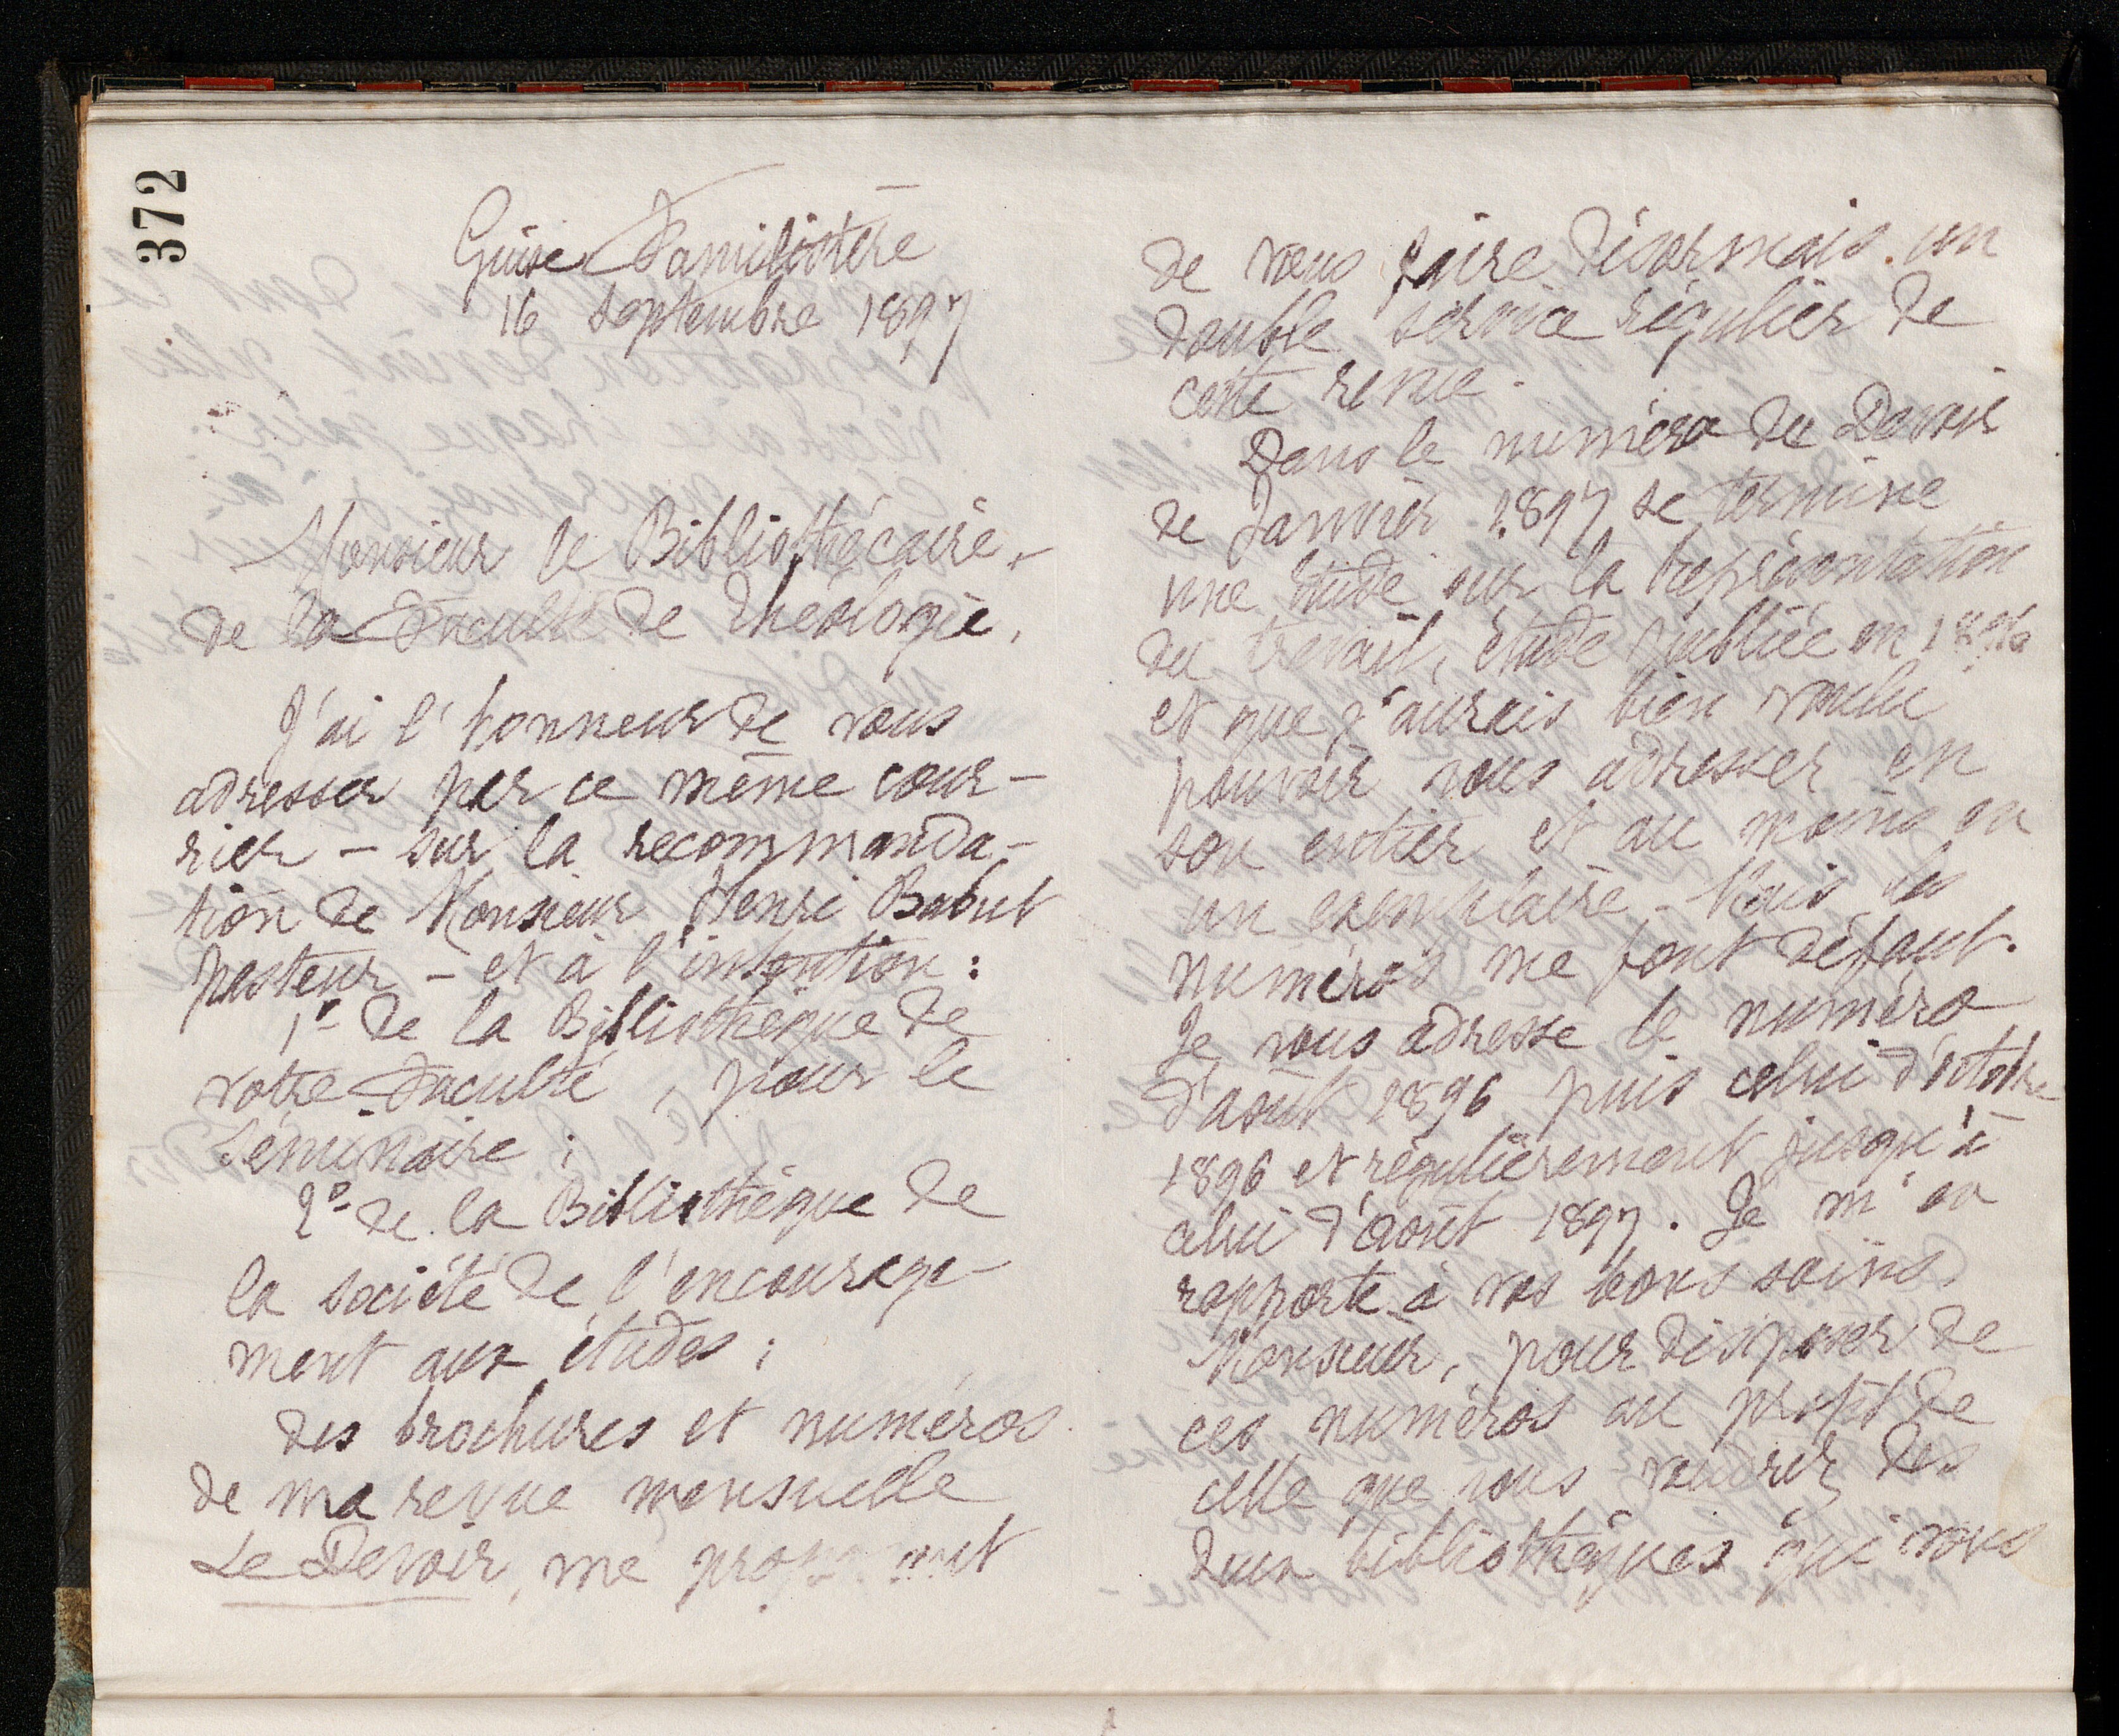 372
Guise Familistère
16 septembre 1897
Monsieur le Bibliothécaire
de la Faculté de Théologie,
J'ai l'honneur de vous
adresser par ce même cour-
rier – sur la recommanda-
tion de Monsieur Henri Babut
pasteur – et à l'intention :
1º de la Bibliothèque de
votre Faculté, pour le
Séminaire ;
2º de la Bibliothèque de
la société de l'encourage-
ment aux études ;
des brochures et numéros
de ma revue mensuelle
Le Devoir, me proposant
de vous faire désormais un
double service régulier de
cette revue.
Dans le numéro du Devoir
de Janvier 1897 se termine
une étude sur la représentation
du travail, étude publiée en 1896
et que j'aurais bien voulu
pouvoir vous adresser en
son entier et au moins en
un exemplaire. Mais les
numéros me font défaut.
Je vous adresse le numéro
d'août 1896 puis celui d'octobre
1896 et régulièrement jusqu'à
celui d'août 1897. Je m'en
rapporte à vos bons soins,
Monsieur, pour disposer de
ces numéros au profit de
celle que vous voudrez des
deux bibliothèques qui vous